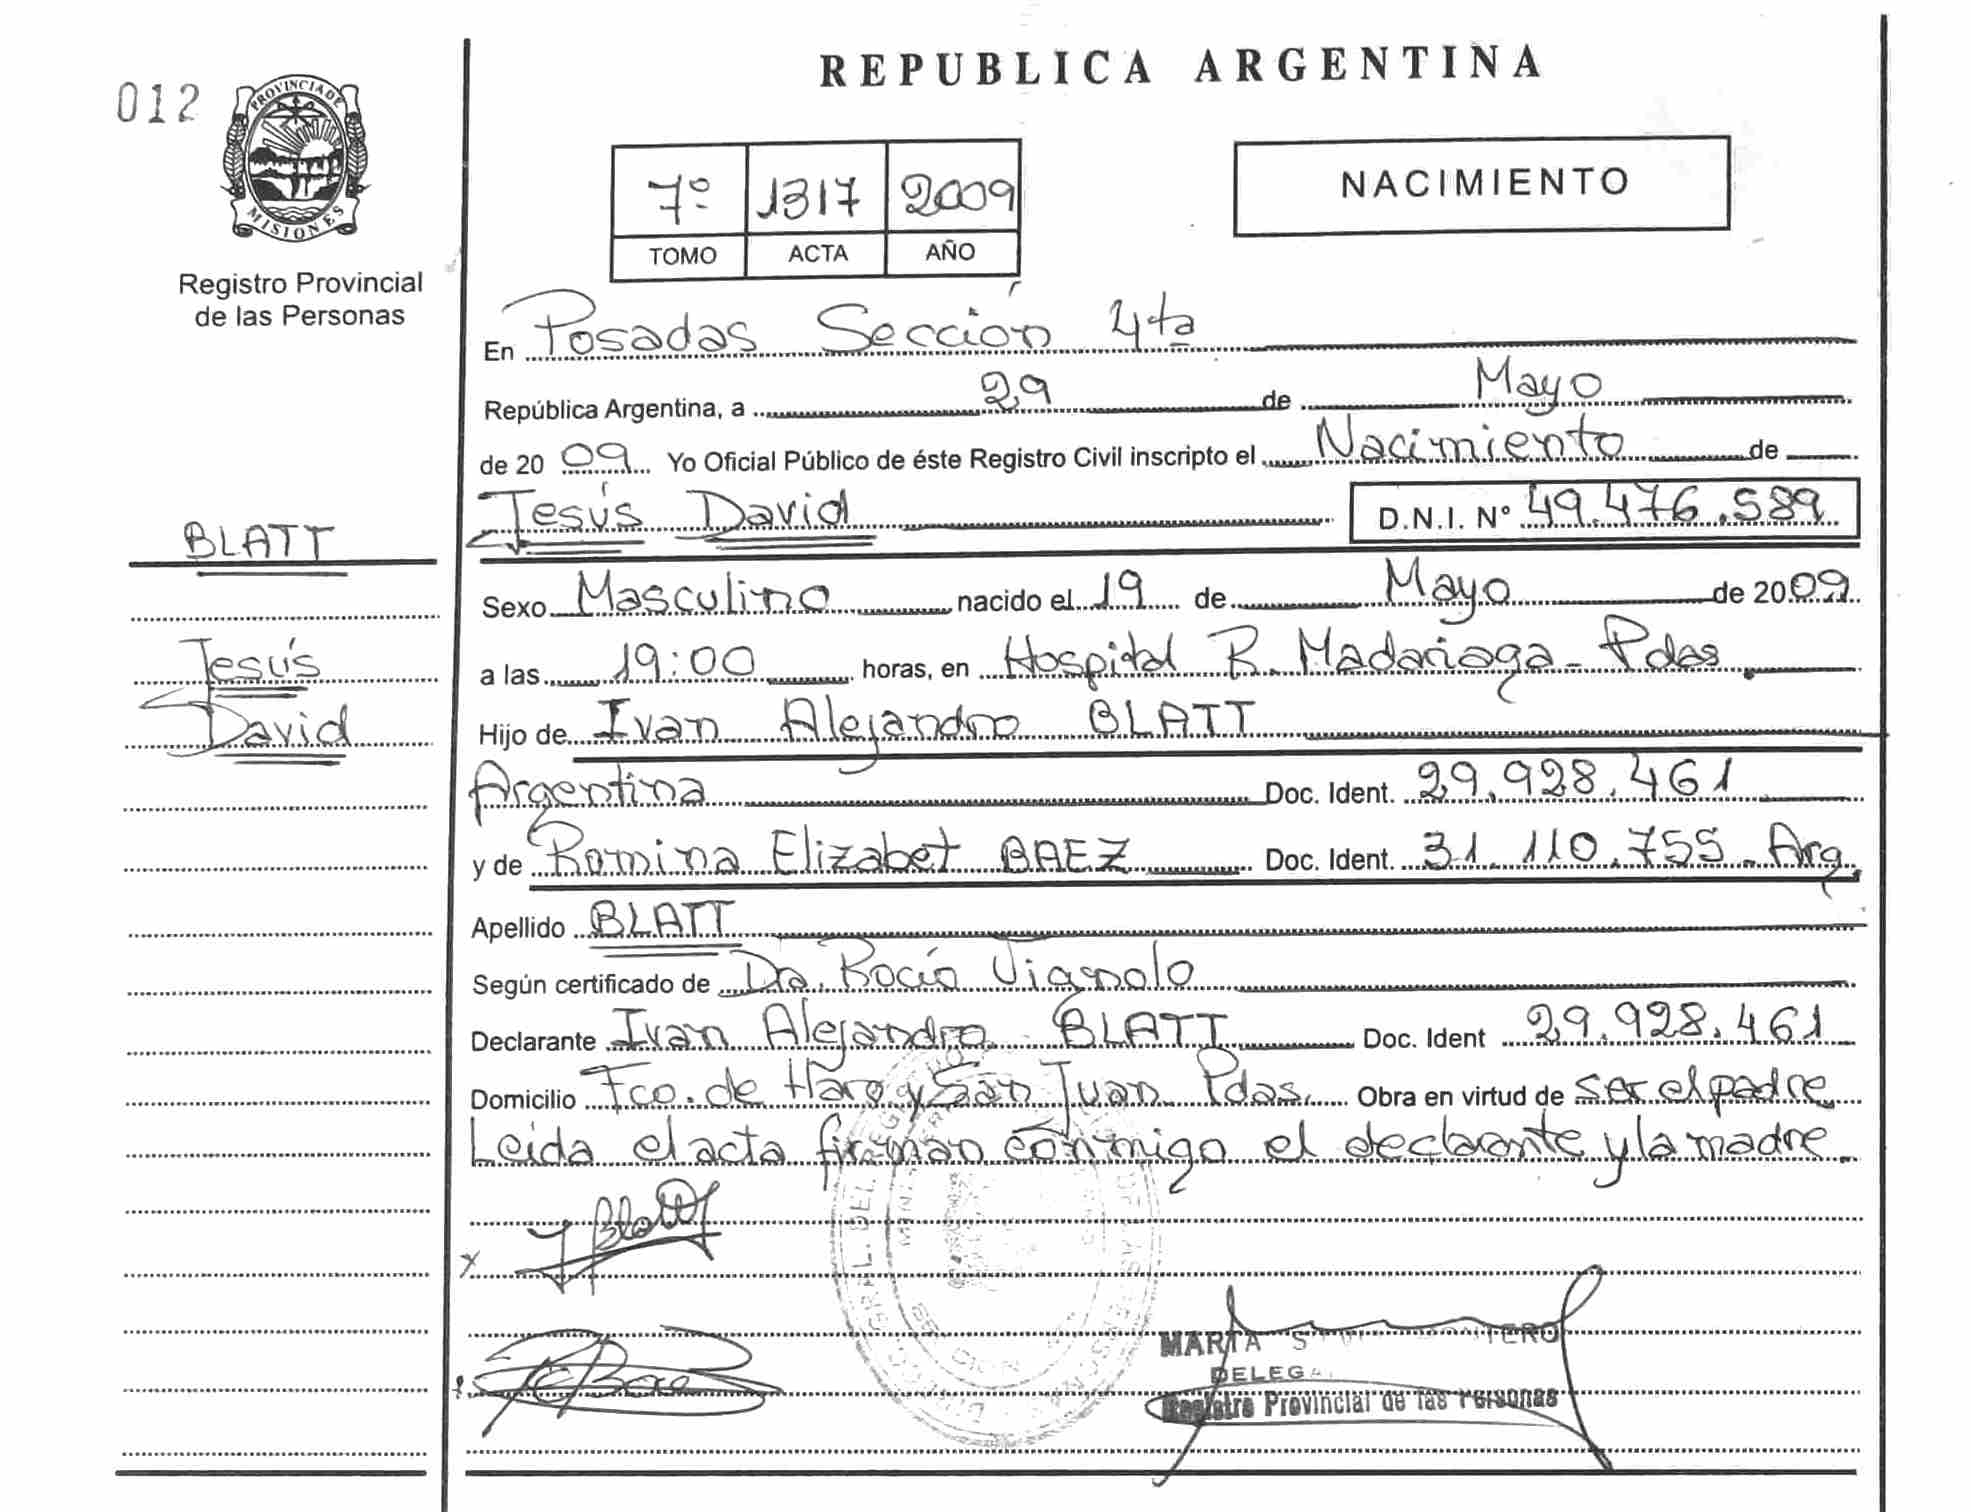 REPUBLICA ARGENTINA
012
PROVINCIA DE
MISIONES
Registro Provincial
de las Personas
7º 1317 2009
TOMO ACTA AÑO
NACIMIENTO
En Posadas Sección 4ta
República Argentina, a 29 de Mayo
de 20 09 Yo Oficial Público de éste Registro Civil inscripto el Nacimiento de
Jesús David D.N.I. Nº 49.476.589
BLATT
Jesús
David
Sexo Masculino nacido el 19 de Mayo de 2009
a las 19:00 horas, en Hospital R. Madariaga - Pdas.
Hijo de Ivan Alejandro BLATT
Argentina Doc. Ident. 29.928.461
y de Romina Elizabet BAEZ Doc. Ident. 31.110.755 - Arg.
Apellido BLATT
Según certificado de Dra. Rocío Vignolo
Declarante Ivan Alejandro BLATT Doc. Ident 29.928.461
Domicilio Fco. de Haro y San Juan Pdas. Obra en virtud de ser el padre
Leída el acta firman conmigo el declarante y la madre.
x Blatt
x Baez
MARTA MONTERO
Registro Provincial de las Personas